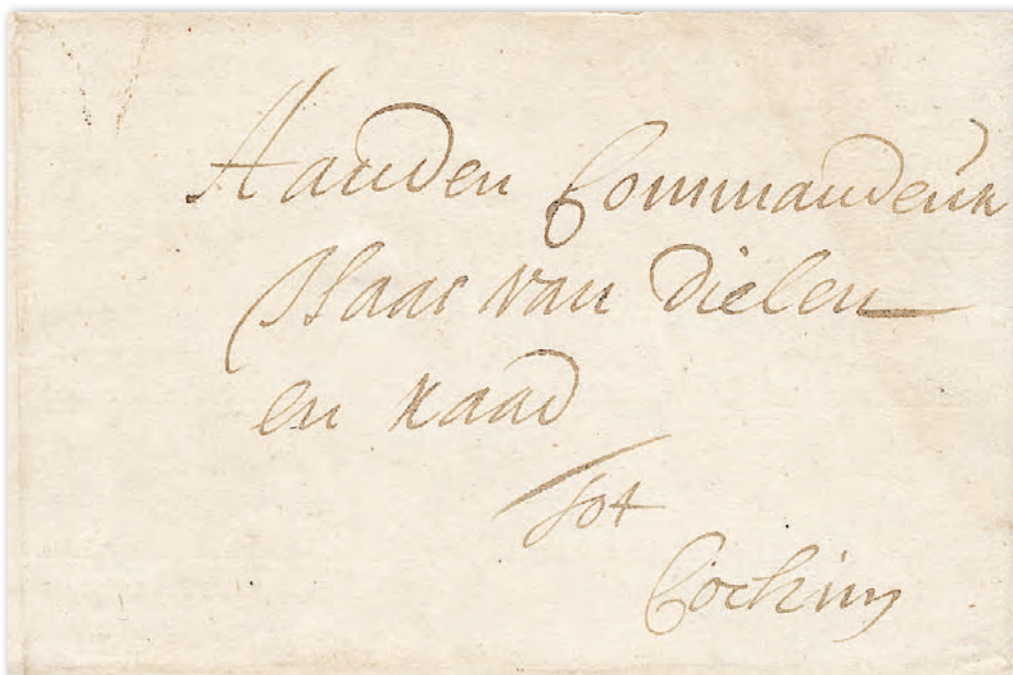 Aanden Commandeur
Isaac van Dielen
en Raad
tot
Cochim